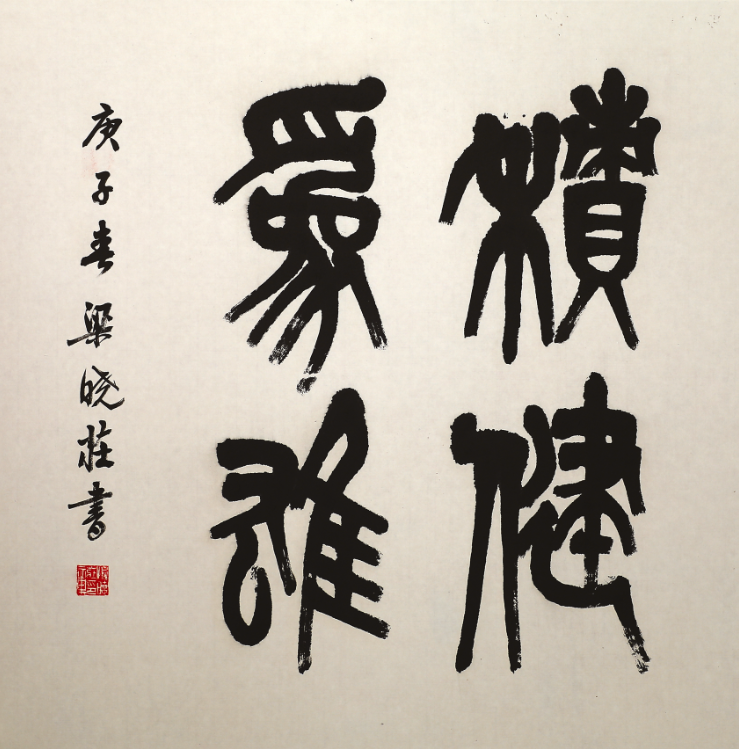 積健
為雄
庚子春梁晓莊書